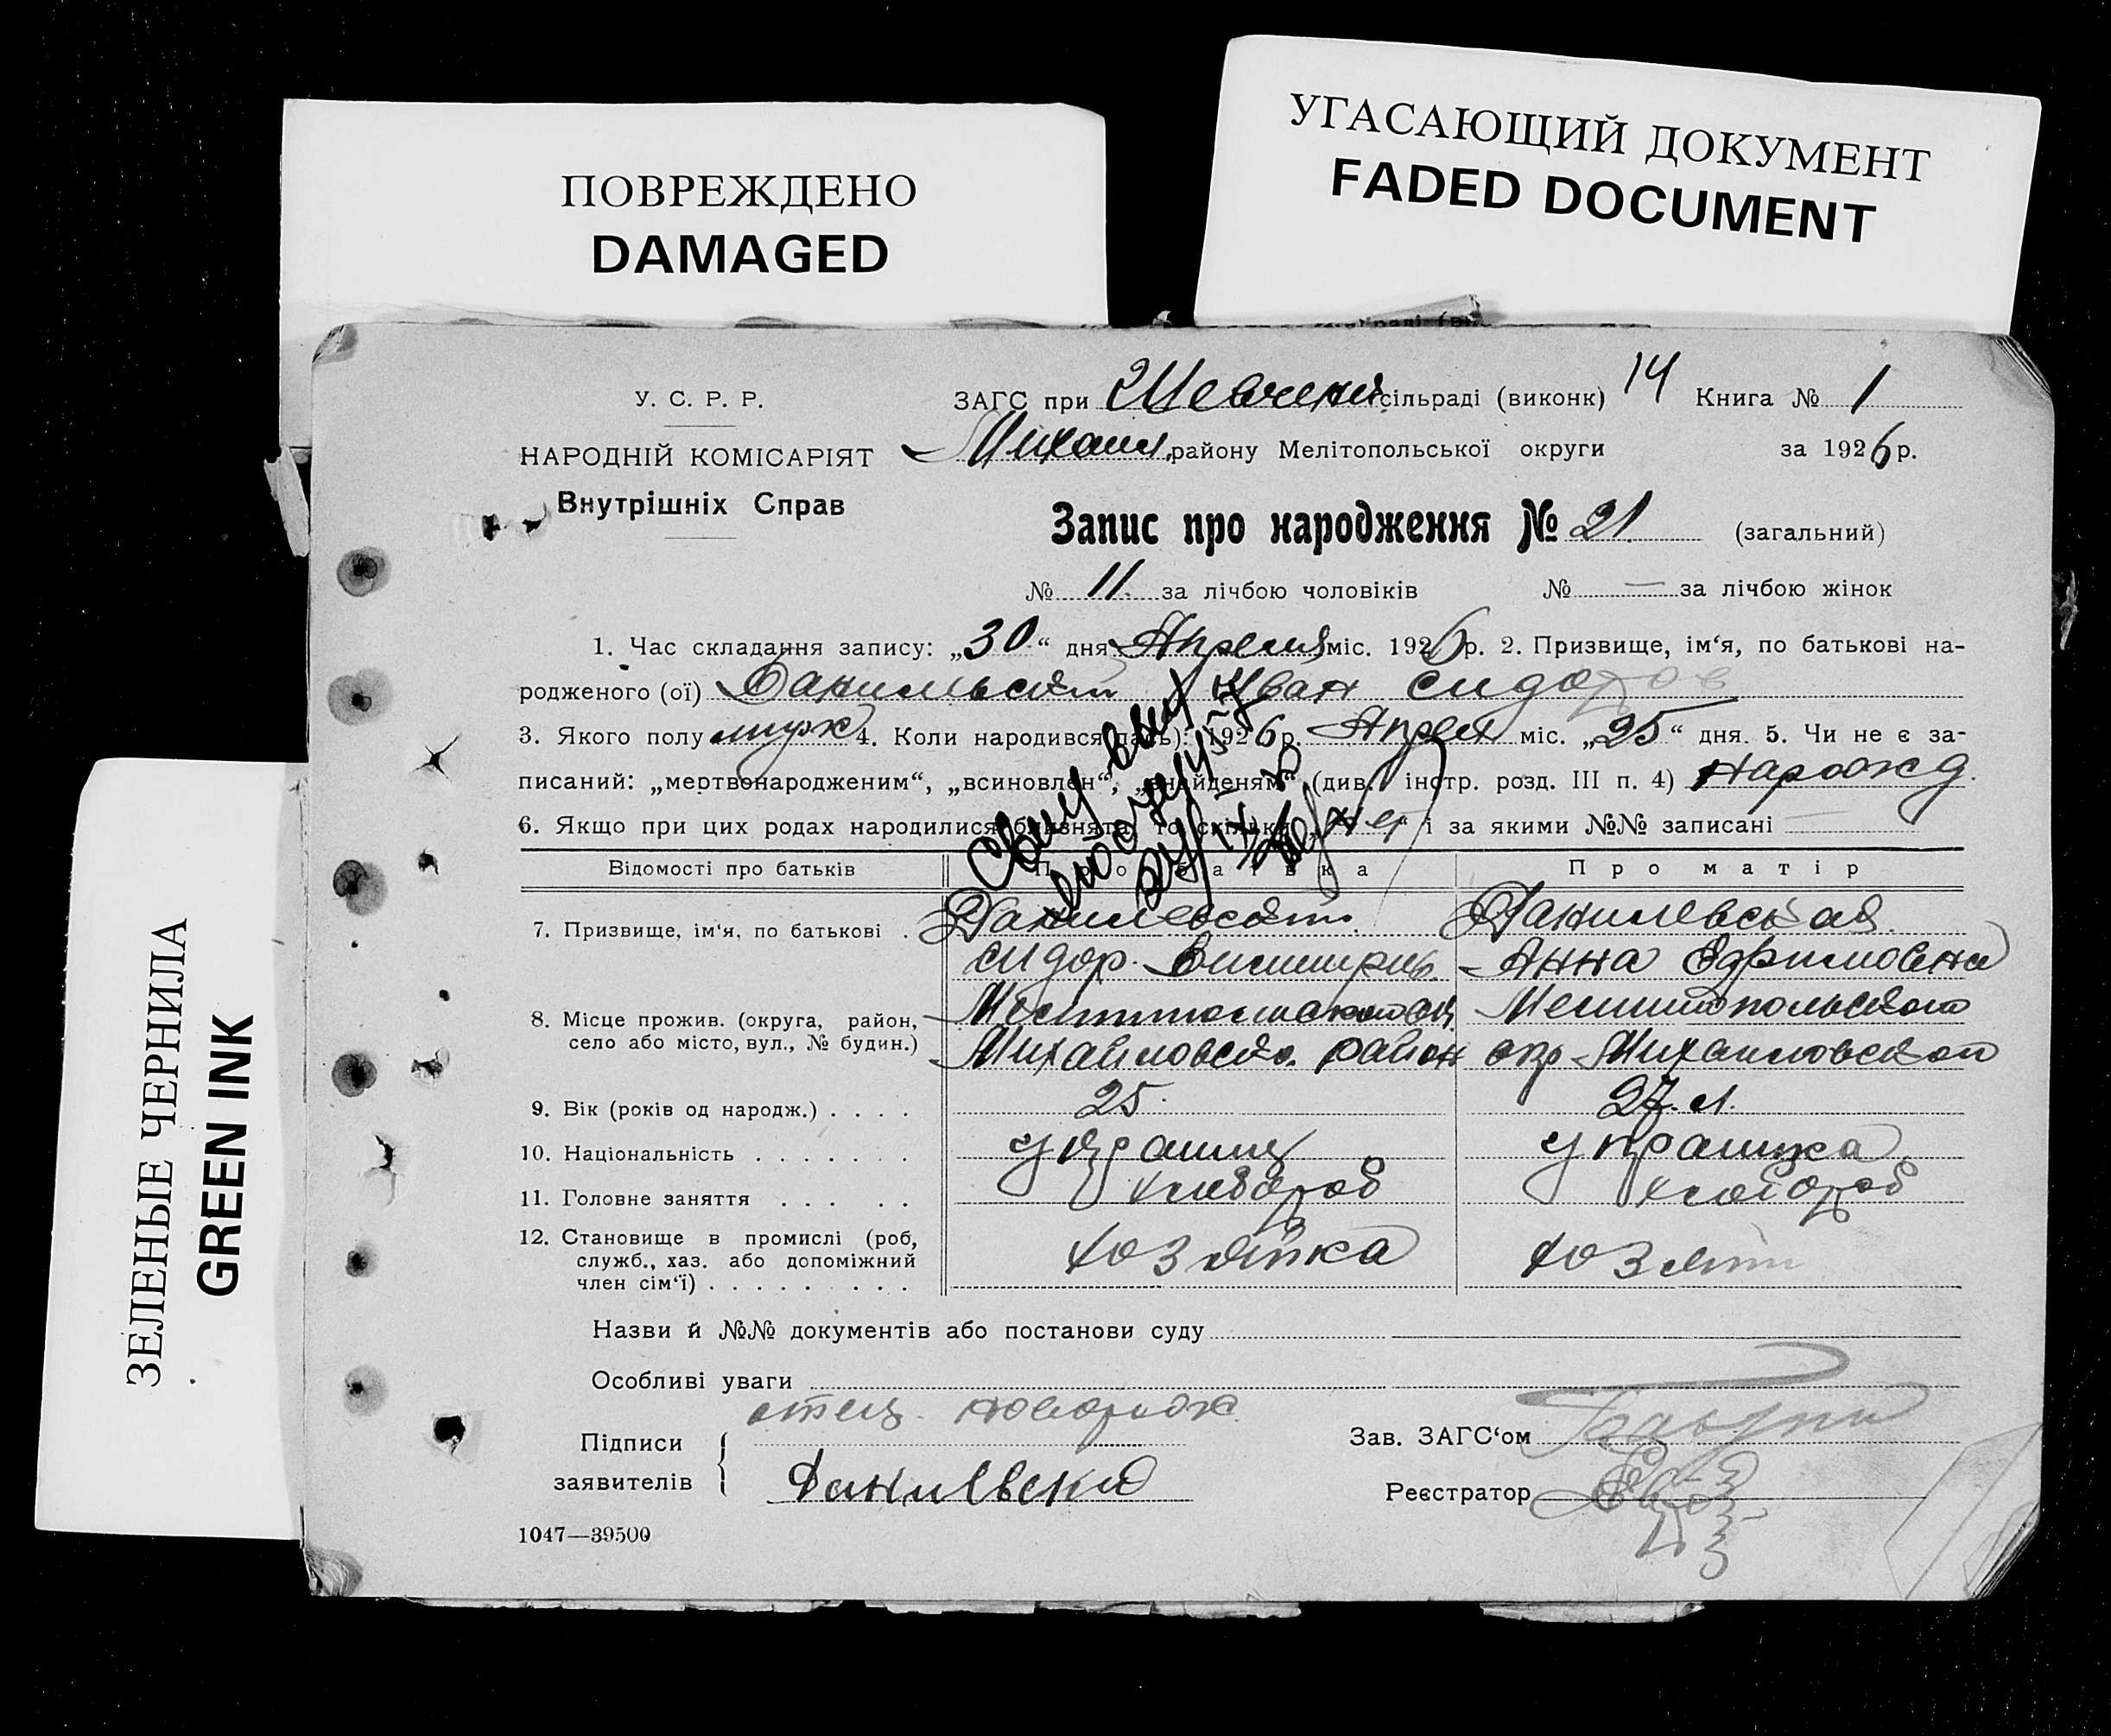 ПОВРЕЖДЕНО
DAMAGED
УГАСАЮЩИЙ ДОКУМЕНТ
FADED DOCUMENT
ЗЕЛЕНЫЕ ЧЕРНИЛА
GREEN INK
У. С. Р. Р.
НАРОДНІЙ КОМІСАРІЯТ
Внутрішніх Справ
ЗАГС при сільраді (виконк) 14 Книга № 1
Михайл. району Мелітопольської округи за 1926 р.
Запис про народження № 21. (загальний)
№ 11. за лічбою чоловіків № — за лічбою жінок
1. Час складання запису: „30“ дня Апреля міс. 1926 р. 2. Призвище, ім‘я, по батькові на-
родженого (ої) Данильский Иван Сидоров
3. Якого полу муж 4. Коли народився (лась): 1926 р. Апреля міс. „25“ дня. 5. Чи не є за-
писаний: „мертвонародженим“, „всиновлен“, „знайденям“ (див. інстр. розд. III п. 4) нарожд.
6. Якщо при цих родах народилися близнята, то скільки „нет“ і за якими №№ записані —
Відомості про батьків Про батька Про матір
7. Призвище, ім‘я, по батькові . Данилевский. Данилевская.
Сидор Анна
8. Місце прожив. (округа, район, Мелитопольской
село або місто, вул., № будин.) Михайловско. район окр Михайловской
9. Вік (років од народж.) . . . . 25. 27. л.
10. Національність . . . . . . . украинец украинка
11. Головне заняття . . . . . хлебороб хлебороб
12. Становище в промислі (роб, хозяйка хозяй
служб., хаз. або допоміжний
член сім‘ї) . . . . . . . .
Назви й №№ документів або постанови суду
Особливі уваги
отец новорож
Підписи
заявителів Данилвский
Зав. ЗАГС‘ом
Реєстратор
1047—39500